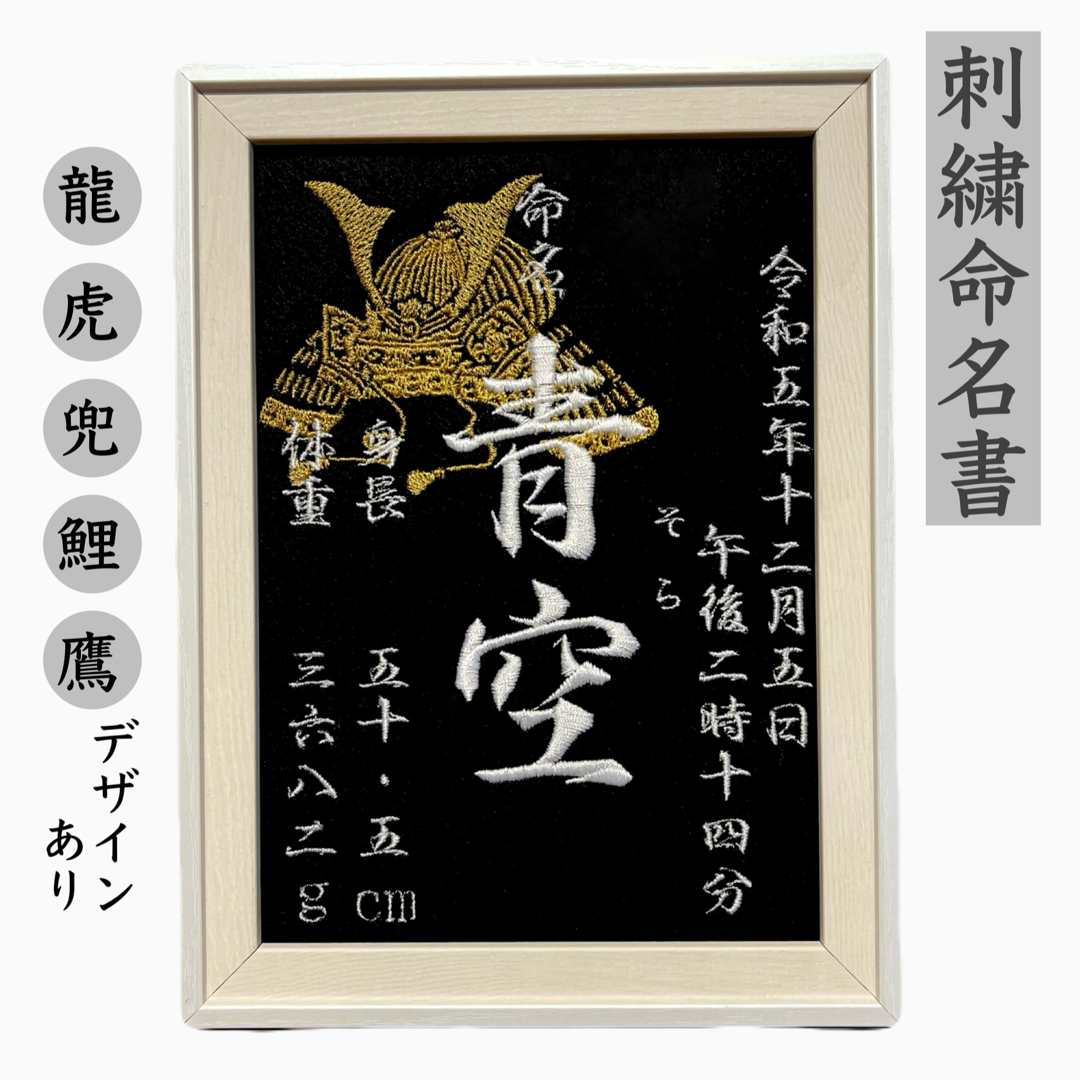 刺繍命名書
令和五年十二月五日
午後二時十四分
そら
命名
青空
身長 五十・五cm
体重 三六八二g
龍
虎
兜
鯉
鷹
デザイン
あり